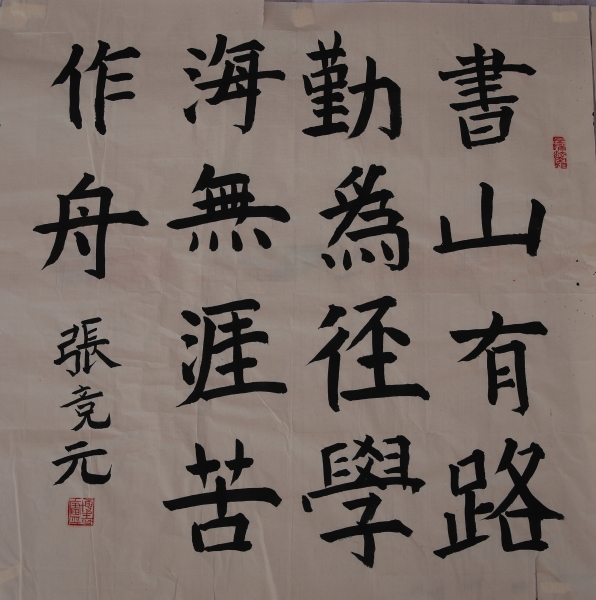 書山有路
勤為徑學
海無涯苦
作舟
張竞元